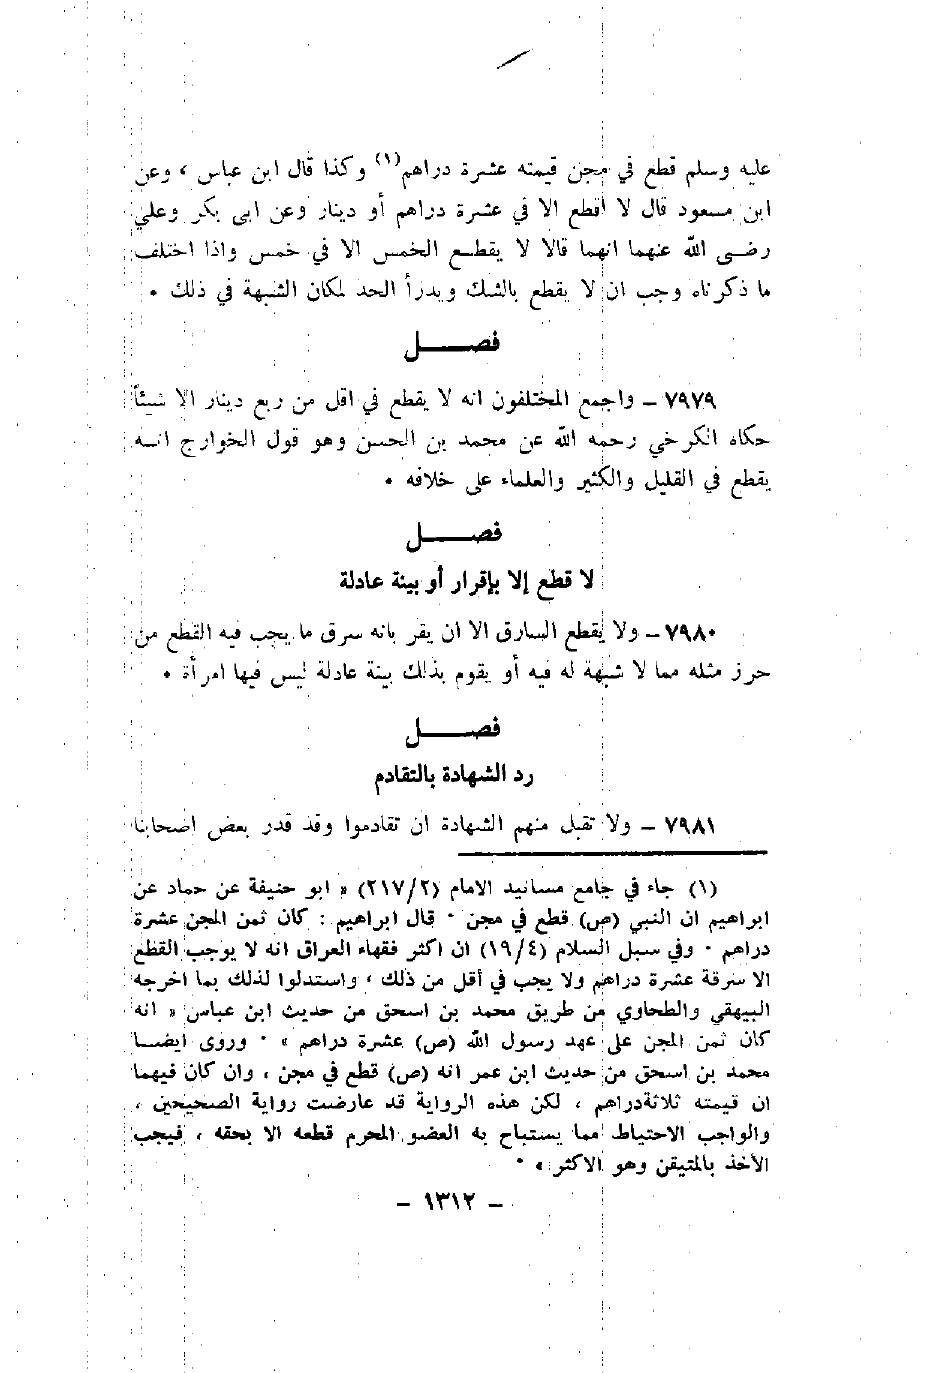 عليه وسلم قطع في مجن قيمته عشرة دراهم(١) وكذا قال ابن عباس ، وعن
ابن مسعود قال لا أقطع الا في عشرة دراهم أو دينار وعن ابى بكر وعلي
رضـى الله عنهما انهما قالا لا يقطـع الخمس الا في خمس واذا اختلف
ما ذكرناه وجب ان لا يقطع بالشك ويدرأ الحد لمكان الشبهة في ذلك .
فصـــــل
٧٩٧٩ – واجمع المختلفون انه لا يقطع في اقل من ربع دينار الا شيئاً
حكاه الكرخي رحمه الله عن محمد بن الحسن وهو قول الخوارج انـه
يقطع في القليل والكثير والعلماء على خلافه .
فصـــــل
لا قطع إلا بإقرار أو بينة عادلة
٧٩٨٠ – ولا يقطع السارق الا ان يقر بانه سرق ما يجب فيه القطع من
حرز مثله مما لا شبهة له فيه أو يقوم بذلك بينة عادلة ليس فيها امرأة .
فصـــــل
رد الشهادة بالتقادم
٧٩٨١ – ولا تقبل منهم الشهادة ان تقادموا وقد قدر بعض اصحابنا
(١) جاء في جامع مسانيد الامام (٢١٧/٢) « ابو حنيفة عن حماد عن
ابراهيم ان النبي (ص) قطع في مجن . قال ابراهيم : كان ثمن المجن عشرة
دراهم . وفي سبل السلام (١٩/٤) ان اكثر فقهاء العراق انه لا يوجب القطع
الا سرقة عشرة دراهم ولا يجب في أقل من ذلك ، واستدلوا لذلك بما اخرجه
البيهقي والطحاوي من طريق محمد بن اسحق من حديث ابن عباس « انه
كان ثمن المجن على عهد رسول الله (ص) عشرة دراهم » . وروى ايضـا
محمد بن اسحق من حديث ابن عمر انه (ص) قطع في مجن ، وان كان فيهما
ان قيمته ثلاثةدراهم ، لكن هذه الرواية قد عارضت رواية الصحيحين ،
والواجب الاحتياط مما يستباح به العضو المحرم قطعه الا بحقه ، فيجب
الأخذ بالمتيقن وهو الاكثر» .
– ١٣١٢ –